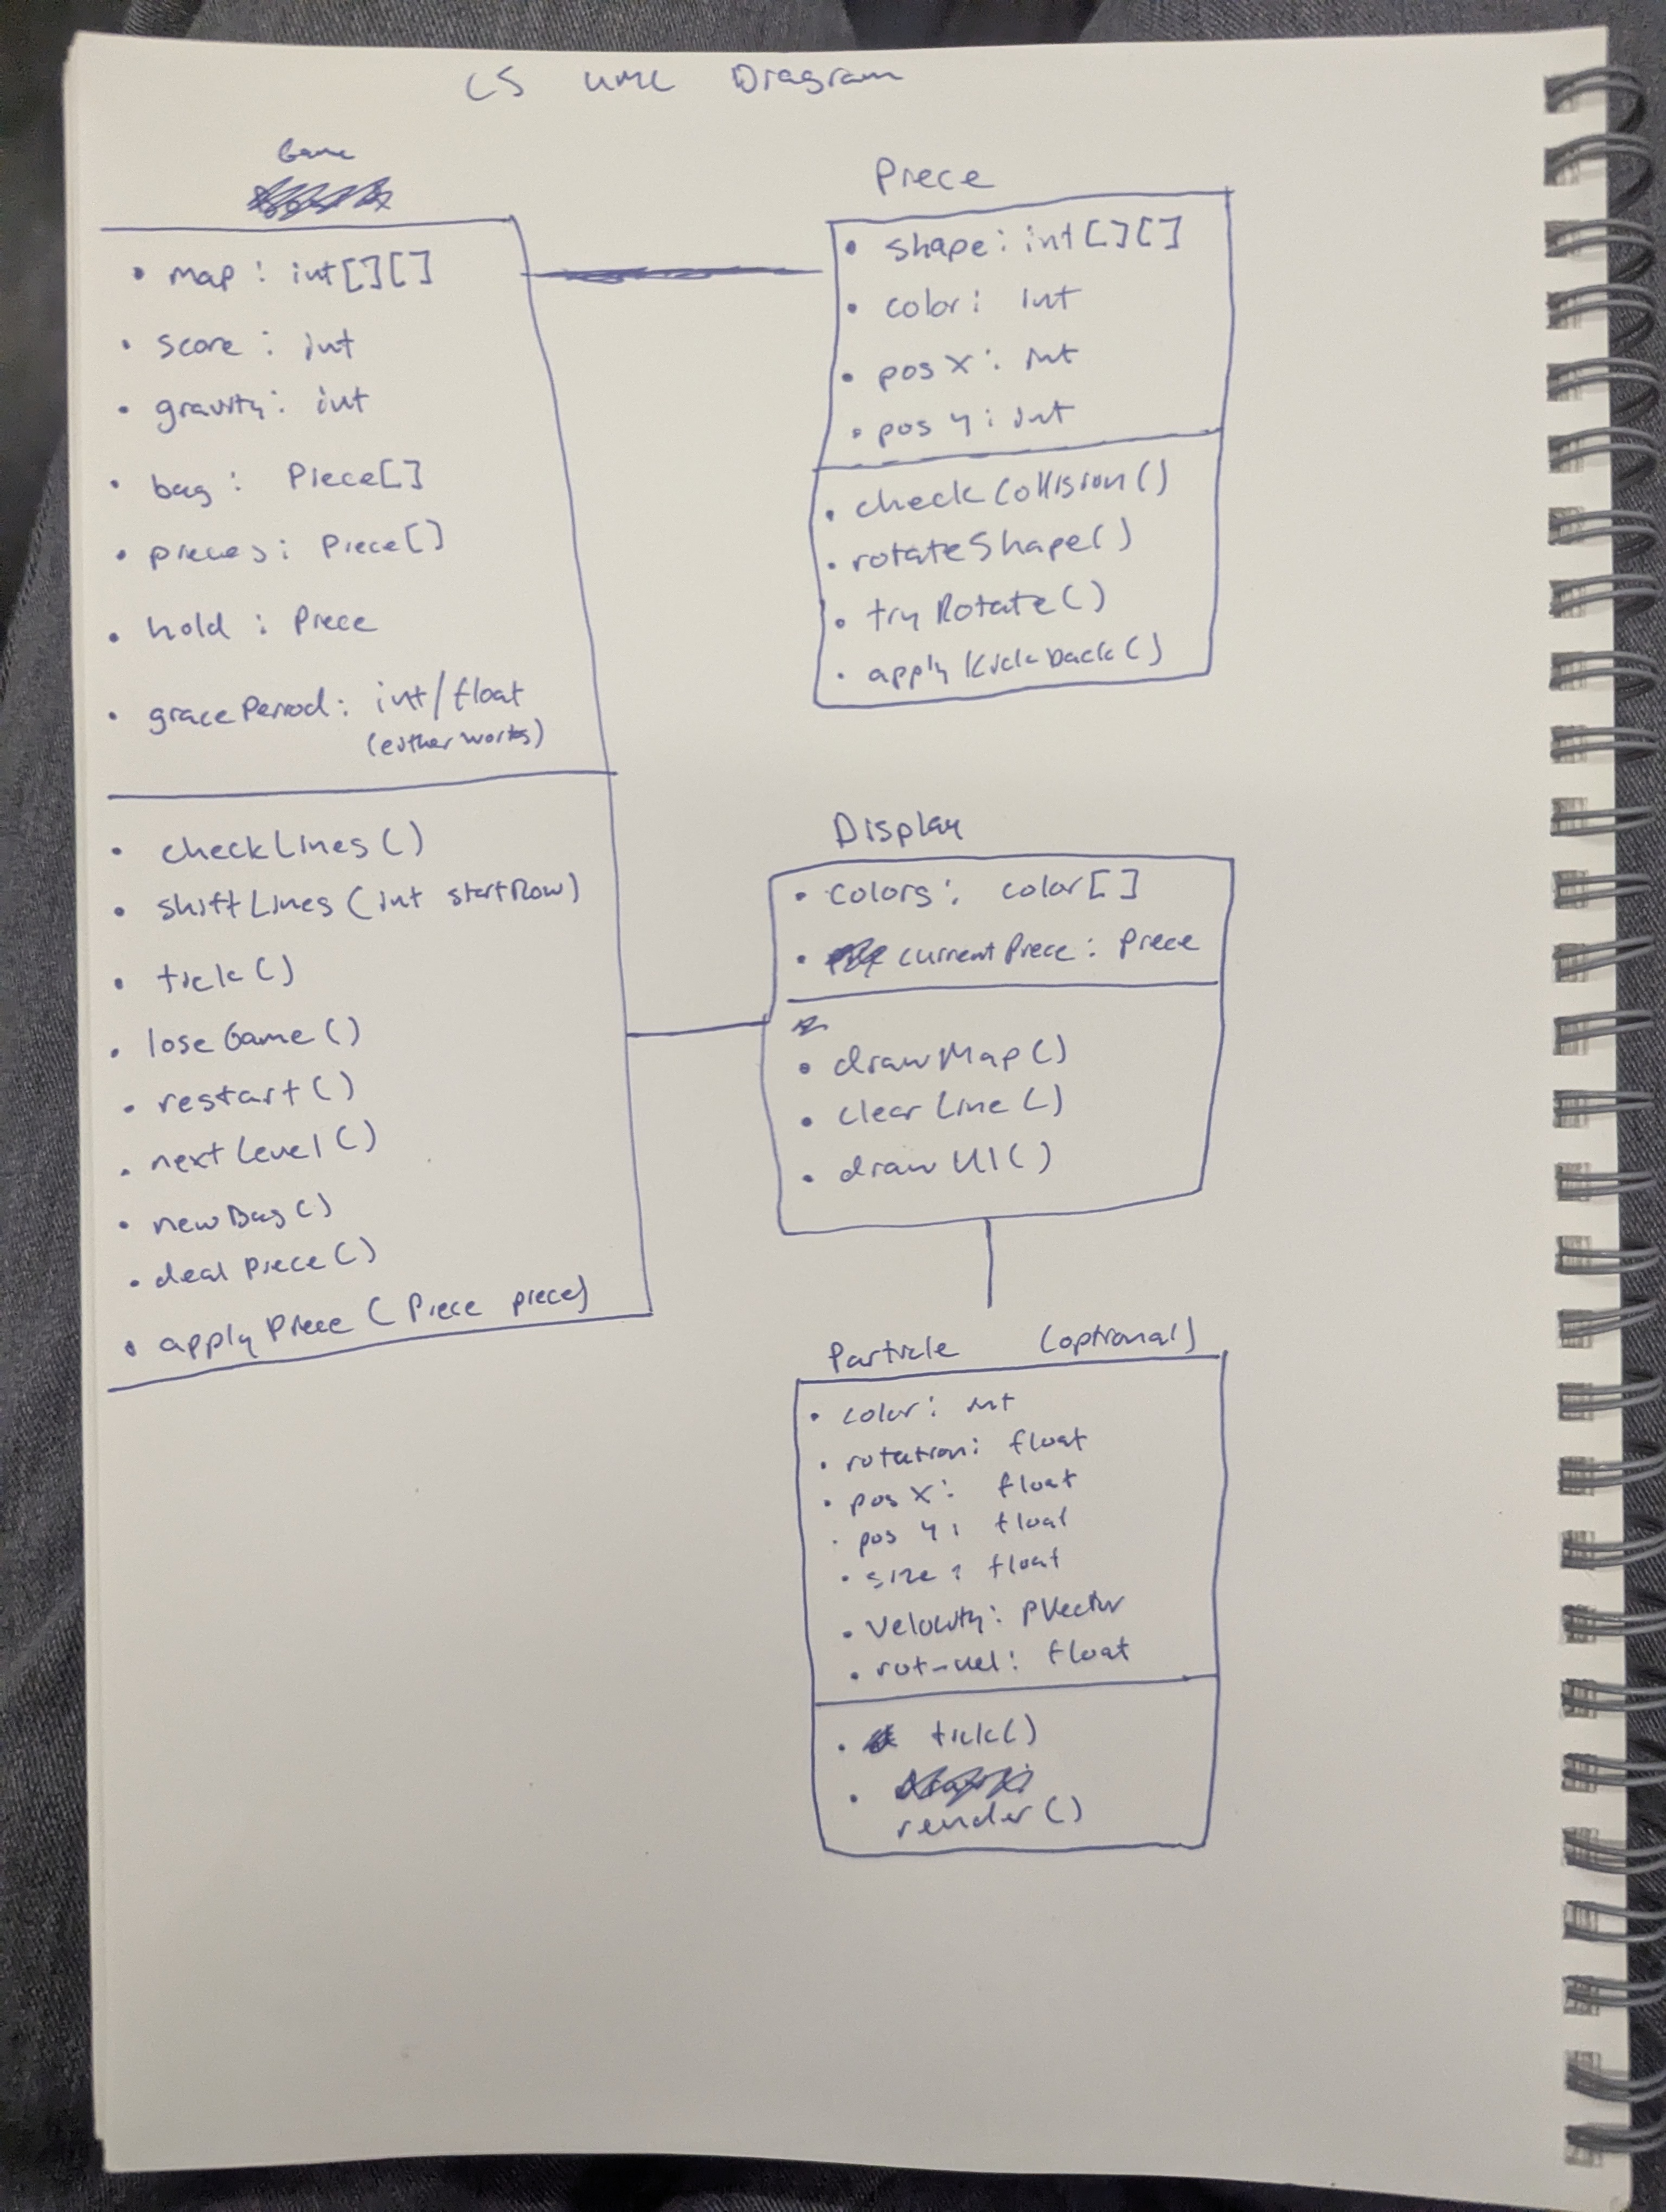 CS UML Diagram
Game
• map : int[][]
• score : int
• gravity : int
• bag : Piece[]
• pieces : Piece[]
• hold : Piece
• gracePeriod : int/float
(either works)
• checkLines()
• shiftLines(int startRow)
• tick()
• loseGame()
• restart()
• nextLevel()
• newBag()
• dealPiece()
• applyPiece(Piece piece)
Piece
• shape : int[][]
• color : int
• posX : int
• posY : int
• checkCollision()
• rotateShape()
• tryRotate()
• applyKickback()
Display
• colors : color[]
• currentPiece : Piece
• drawMap()
• clearLine()
• drawUI()
Particle (optional)
• color : int
• rotation : float
• posX : float
• posY : float
• size : float
• velocity : PVector
• rot-vel : float
• tick()
•
render()